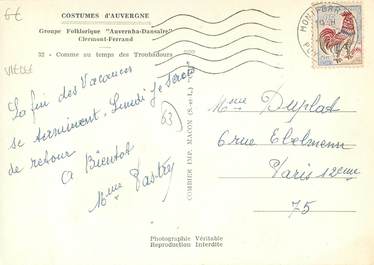 6€
COSTUMES d'AUVERGNE
Groupe Folklorique "Auvernha-Dansaïre"
Clermont-Ferrand
32 - Comme au temps des Troubadours
VIELLE
La fin des Vacances
se terminent, Lundi Je serai
de retour
A Bientôt
Mme Pastry
63
COMBIER IMP. MACON (S.-et-L.)
Mme Duplat
6 rue Ebelmenn
Paris 12eme
75
Photographie Véritable
Reproduction Interdite